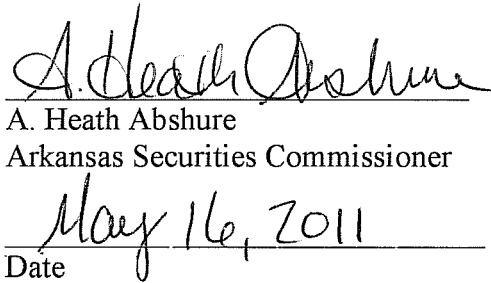 A. Heath Abshure
A. Heath Abshure
Arkansas Securities Commissioner
May 16, 2011
Date